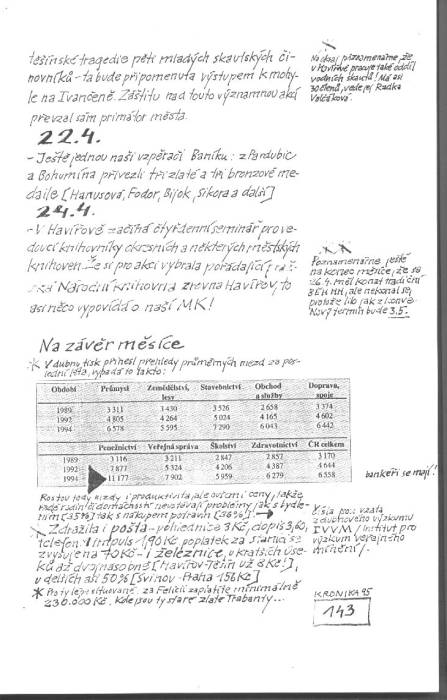 těšínské tragedie pěti mladých skautských či-
novníků - ta bude připomenuta výstupem k mohy-
le na Ivančeně. Záštitu nad touto významnou akcí
převzal sám primátor města.
22.4.
- Ještě jednou naši vzpěrači Baníku: z Pardubic
a Bohumína přivezli tři zlaté a tři bronzové me-
daile [Hanusová, Fodor, Bijok, Sikora a další]
24.4.
- V Havířově začíná čtyřdenní seminář pro ve-
doucí knihovníky okresních a některých městských
knihoven. Že si pro akci vybrala pořádající praž-
ská Národní knihovna zrovna Havířov, to
asi něco vypovídá o naší MK!
Na okraj poznamenejme že
v Havířově pracuje také oddíl
vodních skautů! Má asi
30 členů, vede jej Radka
Volčáková.
Poznamenejme ještě
na konec měsíce, že se
26.4. měl konat tradiční
BEH HH, ale nekonal se,
protože
Nový termín bude 3.5.
Na závěr měsíce
* V dubnu tisk přinesl přehledy průměrných mezd za pos-
lední léta, vypadá to takto:
Období Průmysl Zemědělství, lesy Stavebnictví Obchod a služby Doprava, spoje
1989 3 311 3 430 3 526 2 658 3 374
1992 4 805 4 264 5 024 4 165 4 602
1994 6 578 5 595 7 290 6 043 6 442
Peněžnictví Veřejná správa Školství Zdravotnictví ČR celkem
1989 3 116 3 211 2 847 2 857 3 170
1992 7 877 5 324 4 206 4 387 4 644
1994 11 177 7 902 5 959 6 279 6 558
bankéři se mají!
Rostou tedy mzdy i produktivita, ale ovšem i ceny, takže
řadě rodin či domácností nezbývají problémy jak s bydle-
ním [35%] tak s nákupem potravin [36%].
* Zdražila i pošta - pohlednice 3 Kč, dopis 3,60,
telefon 1 impuls 1,90 Kč poplatek za stanici se
zvyšuje na 70 Kč - i železnice, u kratších úse-
ků až dvojnásobně [Havířov-Těšín už 8 Kč!],
u delších až 50% [Svinov - Praha 156 Kč]
* Pro ty lépe situované: za Felicii zaplatíte minimálně
230.000 Kč. Kde jsou ty staré zlaté Trabanty...
Čísla jsou vzata
z dubnového výzkumu
IVVM / Institut pro
výzkum veřejného
mínění /.
KRONIKA 95
143